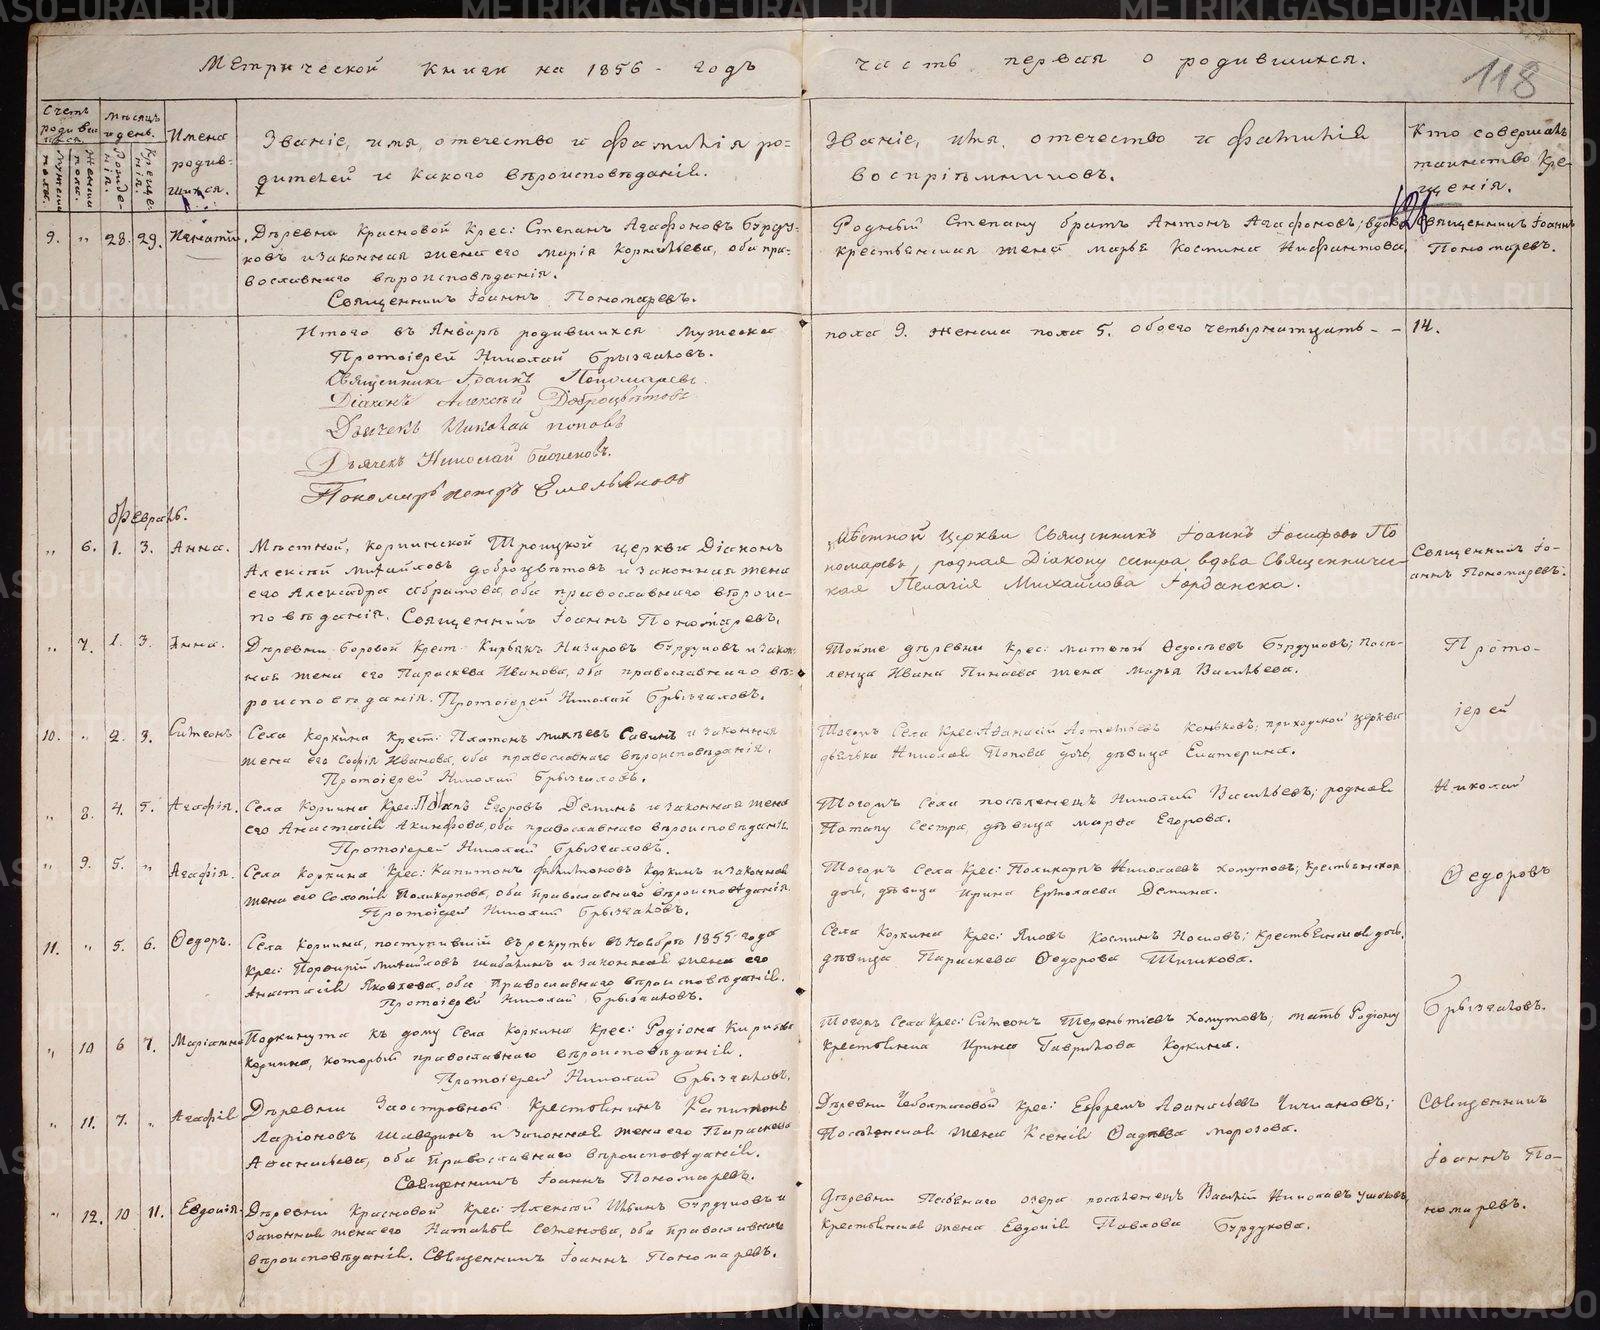 Метрической книги на 1856 годъ
часть первая о родившихся.
118
Счетъ родившихся.
Мужеска пола.
Женска пола.
Мѣсяцъ и день.
Рожденія.
Крещенія.
Имена родившихся.
Званіе, имя, отечество и фамилія родителей и какого вѣроисповѣданія.
Званіе, имя, отечество и фамилія воспріѣмниковъ.
Кто совершалъ таинство крещенія.
9. „ 28. 29. Игнатій.
Деревни Красновой Крес: Степанъ Агафоновъ Бурдуковъ и законная жена его Марія Корнильева, оба православнаго вѣроисповѣданія.
Священникъ Іоаннъ Пономаревъ.
Родный Степану братъ Антонъ Агафоновъ; вдова
крестьянская жена Марья Костина Нифантова.
Священникъ Іоаннъ
Пономаревъ.
Итого въ Январѣ родившихся мужеска
пола 9. женска пола 5. обоего четырнатцать - - 14.
Протоіерей Николай Брызгаловъ.
Священникъ Іоаннъ Пономаревъ.
Діаконъ Алексѣй Доброцвѣтовъ
Дьячекъ Николай Поповъ
Дьячекъ Николай
Пономарь Петръ Емельяновъ
Февраль.
„ 6. 1. 3. Анна.
Мѣстной, Коркинской Троицкой церкви Діаконъ
Алексѣй Михайловъ Доброцвѣтовъ и законная жена
его Александра Абрамова, оба православнаго вѣроис-
повѣданія. Священникъ Іоаннъ Пономаревъ.
Мѣстной Церкви Священникъ Іоаннъ Іосифовъ По
номаревъ, родная Діакону сестра, вдова Священничес-
кая Пелагія Михайлова Іорданска.
Священникъ Іо-
аннъ Пономаревъ.
„ 7. 1. 3. Анна.
Деревни Боровой Крест: Кирьякъ Назаровъ Бурдуковъ и закон-
ная жена его Параскева Иванова, оба православнаго вѣ-
роисповѣданія. Протоіерей Николай Брызгаловъ.
Тойже деревни Крес: Матвѣй Федосѣевъ Бурдуковъ; посе-
ленца Ивана Пинаева жена Марья Васильева.
Прото-
10. „ 2. 3. Симеонъ
Села Коркина Крест: Платонъ Савинъ и законная
жена его Софія Иванова, оба православнаго вѣроисповѣданія.
Протоіерей Николай Брызгаловъ.
Тогожъ Села Крес: Афанасій Артемьевъ Коньковъ; приходской церкви
дьячька Николая Попова дочь, дѣвица Екатерина.
іерей
„ 8. 4. 5. Агафія.
Села Коркина Крес: Потапъ Егоровъ Деминъ и законная жена
его Анастасія Акинфова, оба православнаго вѣроисповѣданія.
Протоіерей Николай Брызгаловъ.
Тогожъ Села поселенецъ Николай Васильевъ; родная
Потапу сестра, дѣвица Марфа Егорова.
Николай
„ 9. 5. „ Агафія.
Села Коркина Крес: Капитонъ Филимоновъ Коркинъ и законная
жена его Соломія Поликарпова, оба православнаго вѣроисповѣданія.
Протоіерей Николай Брызгаловъ.
Тогожъ Села Крес: Поликарпъ Николаевъ Хомутовъ; крестьянская
дочь, дѣвица Ирина Ермолаева Демина.
Федоровъ
11. „ 5. 6. Федоръ.
Села Коркина, поступившій въ рекруты въ Ноябрѣ 1855 года
Крес: Порфирій Михайловъ Шабалинъ и законная жена его
Анастасія Яковлева, оба православнаго вѣроисповѣданія.
Протоіерей Николай Брызгаловъ.
Села Коркина Крес: Яковъ Косминъ Носковъ; крестьянская дочь,
дѣвица Параскева Федорова Шишкова.
„ 10 6 7. Маріамна
Подкинута къ дому Села Коркина Крес: Родіона Кирилова
Коркина, который православнаго вѣроисповѣданія.
Протоіерей Николай Брызгаловъ.
Тогожъ Села Крес: Симеонъ Терентіевъ Хомутовъ; мать Родіону
крестьянка Ирина Гаврилова Коркина.
Брызгаловъ.
„ 11. 7. „ Агафія
Деревни Заостровной крестьянинъ Капитонъ
Ларіоновъ Шаверинъ и законная жена его Параскева
Афанасьева, оба православнаго вѣроисповѣданія.
Священникъ Іоаннъ Пономаревъ.
Деревни Чеболтасовой Крес: Ефремъ Афанасьевъ Чичиановъ;
Поселенская жена Ксенія Фадѣева Морозова.
Священникъ
Іоаннъ По-
„ 12. 10 11. Евдокія.
Деревни Красновой Крес: Алексѣй Бурдуковъ и
законная жена его Наталья Семенова, оба православнаго
вѣроисповѣданія. Священникъ Іоаннъ Пономаревъ.
Деревни озера поселенецъ Василій Николаевъ Ушаковъ
крестьянская жена Евдокія Павлова Бурдукова.
номаревъ.
METRIKI.GASO-URAL.RU